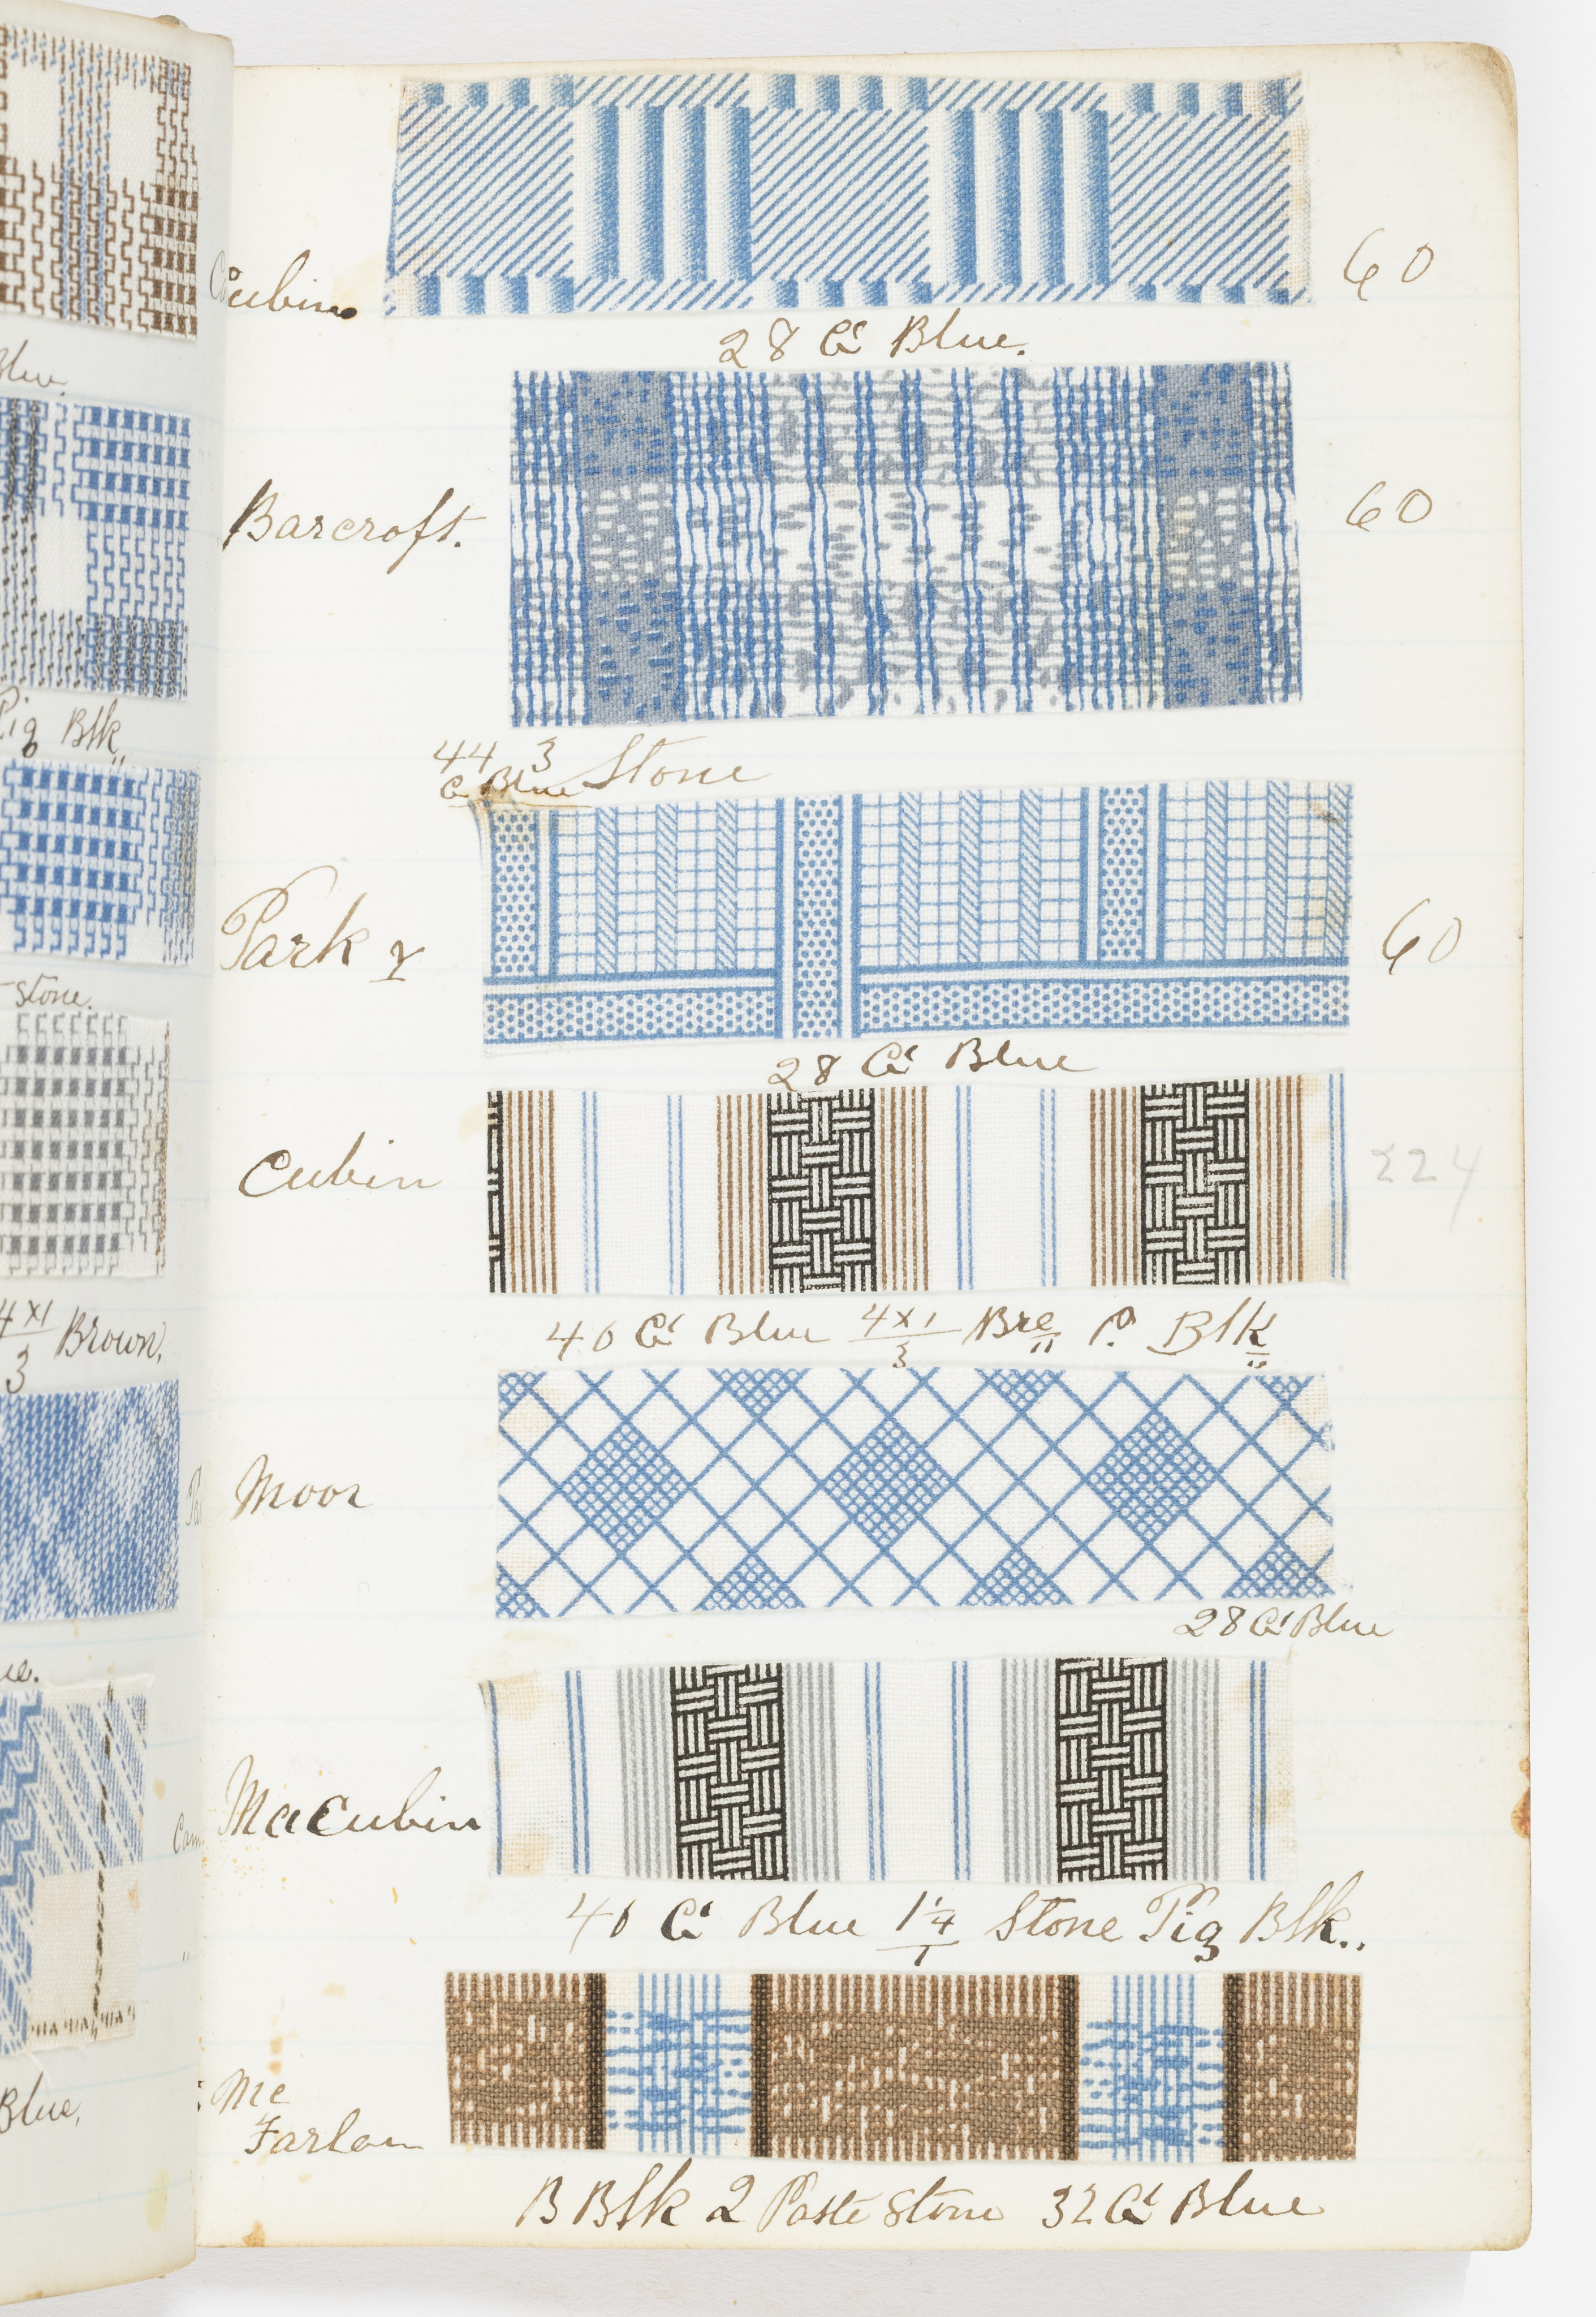 Blue
Pig Blk
stone.
4x1/3 Brown.
Blue,
Cubin
60
28 Ct Blue.
Barcroft.
60
44 3 Stone
Ct Blue
Park
60
28 Ct Blue
Cubin
224
40 Ct Blue 4x1/3 Bre P. Blk
Moor
28 Ct Blue
MaCubin
40 Ct Blue Stone Pig Blk..
Mc
Farlan
B Blk 2 Paste Stone 32 Ct Blue